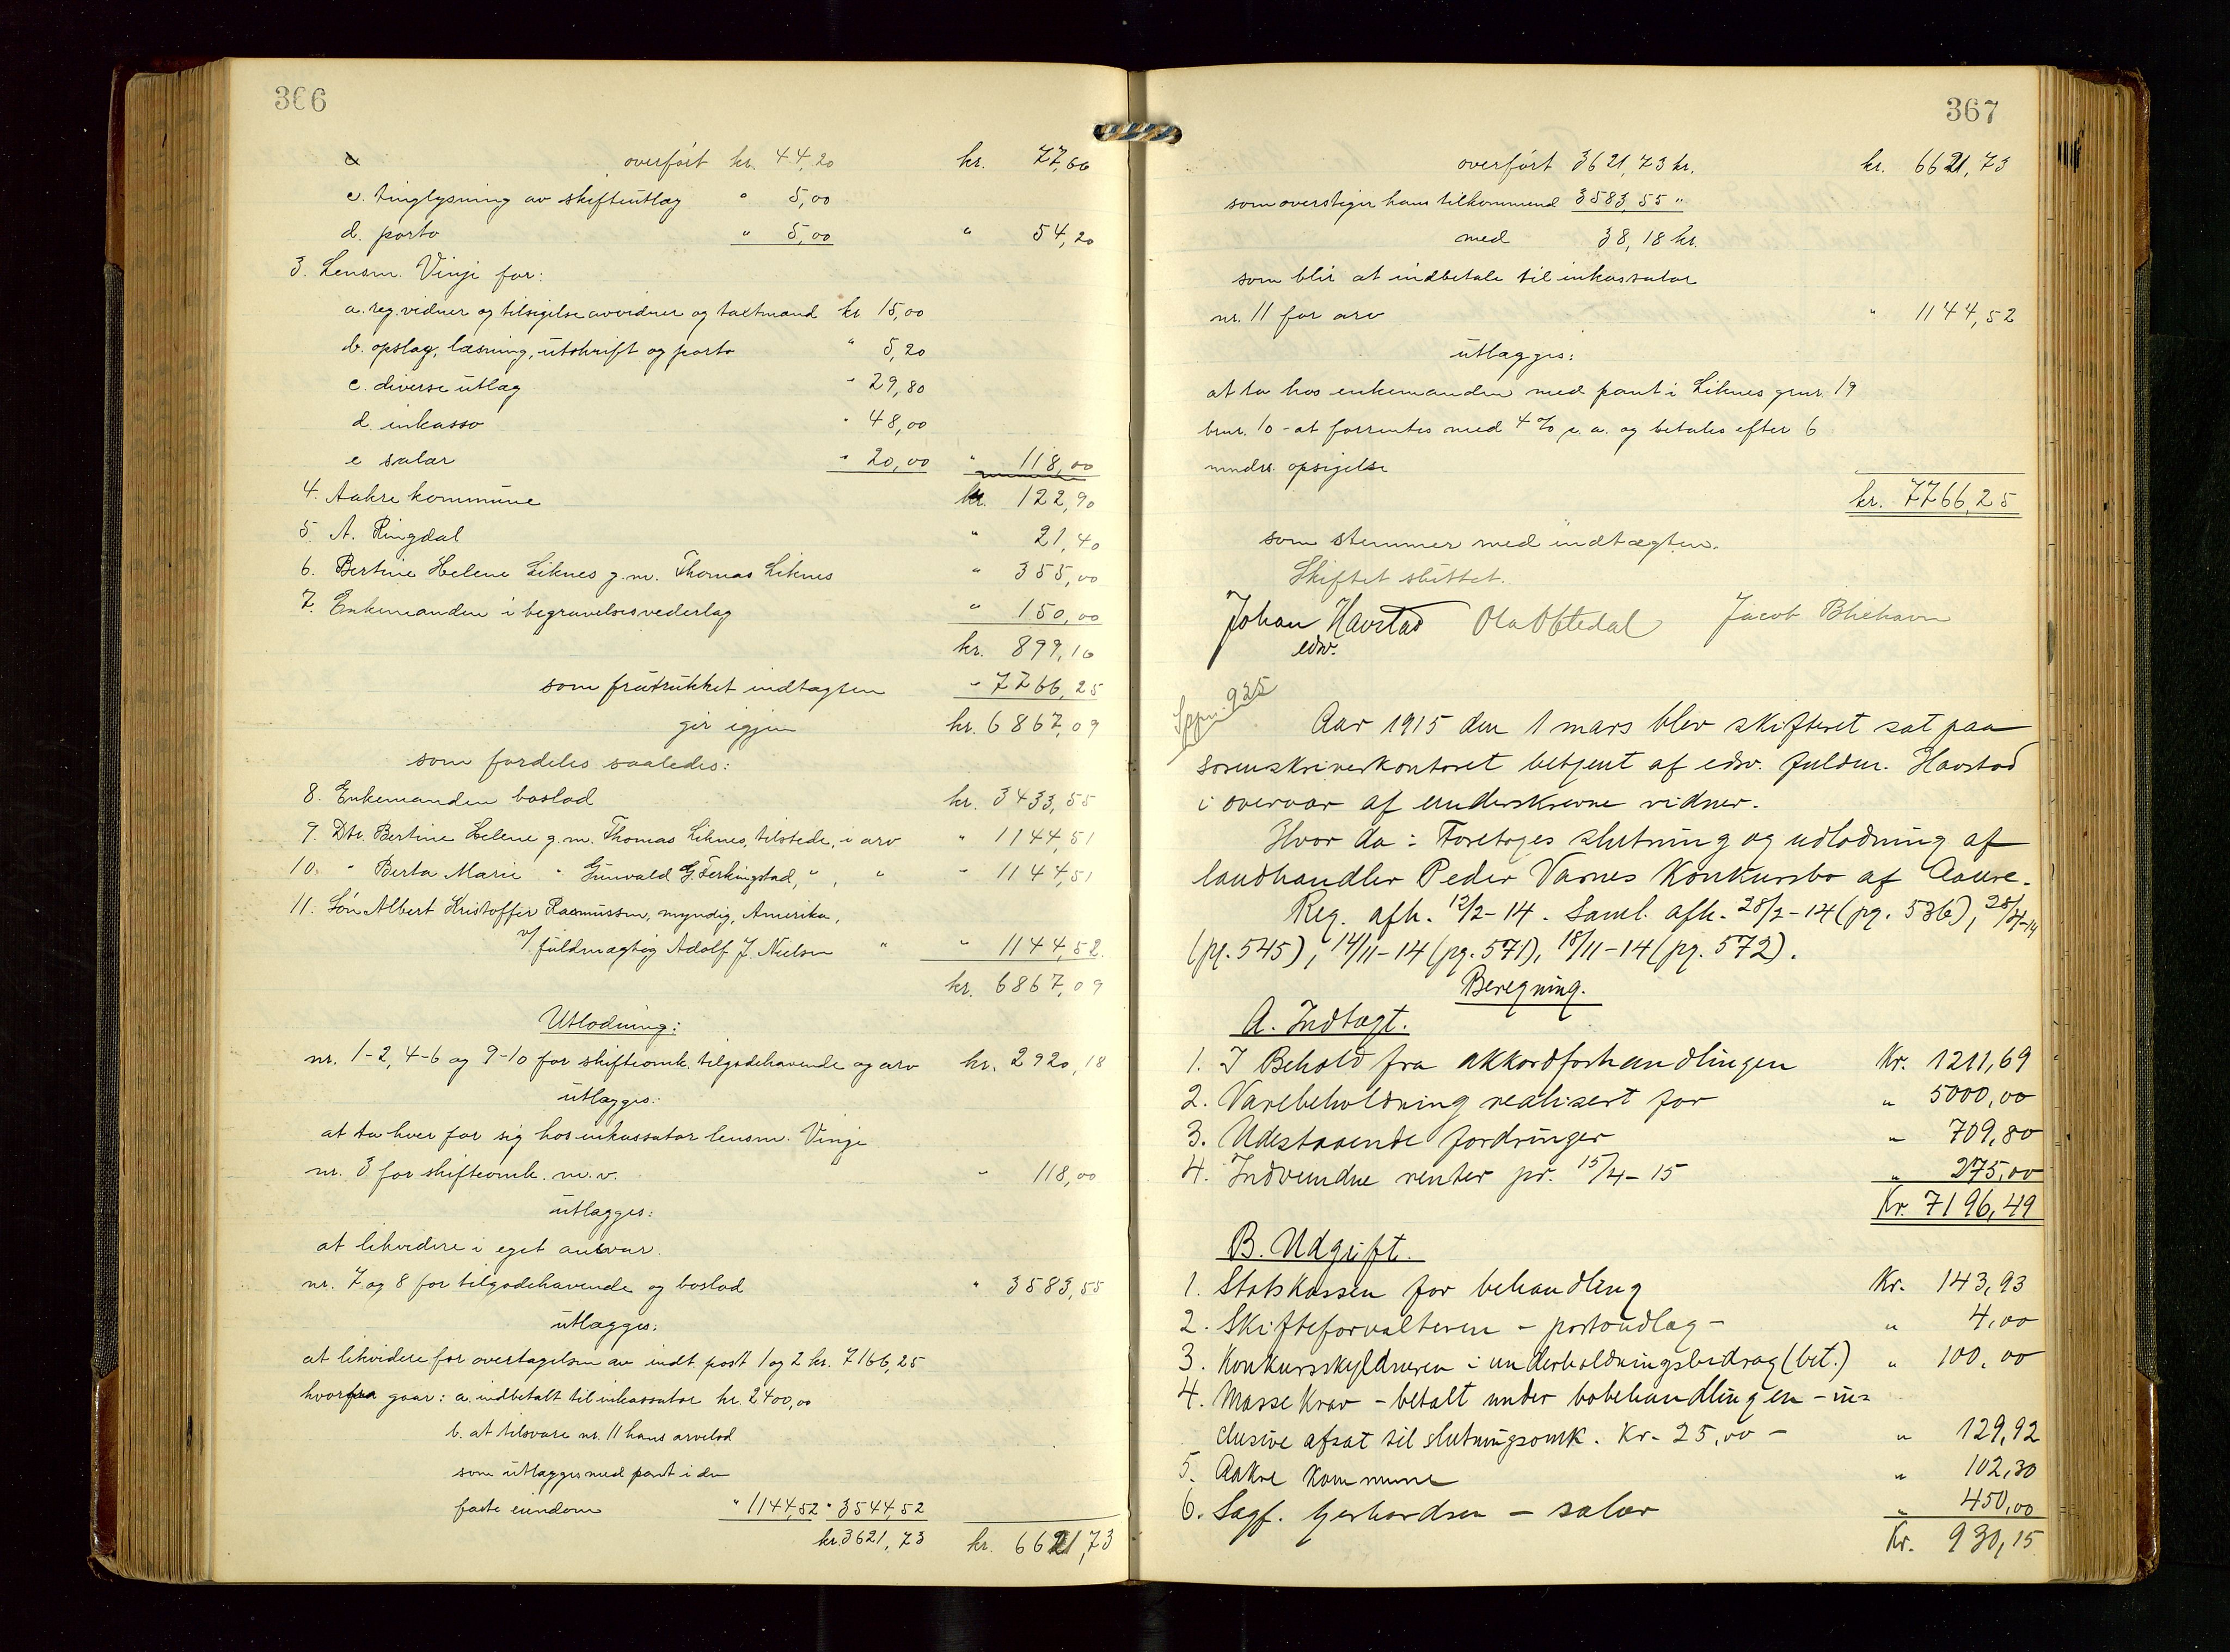 366
overført kr. 44,20 kr. 77,66
c. tinglysning av skifteutlæg " 5,00
d. porto " 5,00 " 54,20
3. Lensm. Vinje for:
a. reg. vidner og tilsigelse av vidner og taxtmænd kr 15,00
b. opslag, læsning, utskrift og porto " 5,20
c. diverse utlæg " 29,80
d. inkasso " 48,00
e salær " 20,00 " 118,00
4. Aakre kommune kr. 122,90
5. A. Ringdal " 21,40
6. Bertine Helene Liknes g.m. Thomas Liknes " 355,00
7. Enkemanden i begravelsesvederlag " 150,00
kr. 899,16
som fratrukket indtægten " 7766,25
gir igjen kr. 6867,09
som fordeles saaledes:
8. Enkemanden boslod kr. 3433,55
9. Dtr. Bertine Helene g.m. Thomas Liknes, tilstede, i arv " 1144,51
10. " Berta Marie " Gunvald G. Ferkingstad, " , " " 1144,51
11. Søn Albert Kristoffer Rasmussen, myndig, Amerika,
v/ fuldmægtig Adolf J. Nielsen " " 1144,52
kr. 6867,09
Utlodning:
nr. 1-2, 4-6 og 9-10 for skifteomk. tilgodehavende og arv kr. 2920,18
utlægges:
at ta hver for sig hos inkassator lensm. Vinje
nr. 3 for skifteomk. m.v. " 118,00
utlægges:
at likvidere i eget ansvar.
nr. 7 og 8 for tilgodehavende og boslod " 3583,55
utlægges:
at likvidere for overtagelsen av indt. post 1 og 2 kr. 7166,25
hvorfra gaar: a. indbetalt til inkassator kr. 2400,00
b. at tilsvare nr. 11 hans arvelod
som utlægges med pant i den
faste eiendom " 1144,52 " 3544,52
kr. 3621,73 kr. 6621,73
367
overført 3621,73 kr. kr. 6621,73
som overstiger hans tilkommend 3583,55 "
med 38,18 kr.
som blir at indbetale til inkassator
nr. 11 for arv " 1144,52
utlægges:
at ta hos enkemanden med pant i Liknes grnr. 19
brnr. 10 - at forrentes med 4% p.a. og betales efter 6
mndrs. opsigelse
kr. 7766,25
som stemmer med indtægten.
Skiftet sluttet.
Johan Havstad Ola Oftedal Jacob
edsv.
935
Aar 1915 den 1 mars blev skifteret sat paa
sorenskriverkontoret betjent af edsv. fuldm. Havstad
i overvær af underskrevne vidner.
Hvor da: Foretoges slutning og udlodning af
landhandler Peder Varnes Konkursbo af Aakre.
Reg. afh. 12/2-14. Saml. afh. 28/2-14 (pg. 536), 28/4-14
(pg. 545), 14/11-14 (pg. 571), 18/11-14 (pg. 572).
Beregning.
A. Indtægt.
1. I Behold fra akkordforhandlingen Kr. 1211,69
2. Varebeholdning realisert for " 5000,00
3. Udestaaende fordringer " 709,80
4. Indvundne renter pr. 15/4-15 " 275,00
Kr. 7196,49
B. Udgift.
1. Statskassen for behandling Kr. 143,93
2. Skifteforvalteren - portoudlæg - " 4,00
3. Konkursskyldneren i underholdningsbidrag (bet.) " 100,00
4. Massekrav - betalt under bobehandlingen - in=
clusive afsat til slutningsomk. Kr. 25,00 - " 129,92
5. Aakre kommune " 102,30
6. Sagf. Gerhardsen - salær " 450,00
Kr. 930,15